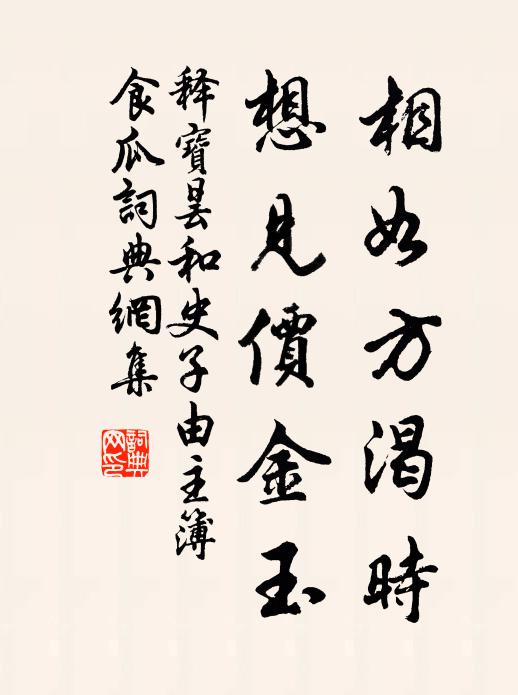 相如方渴時
想見價金玉
释寶昙和史子由主簿
食瓜詞典網集
詞典
网印